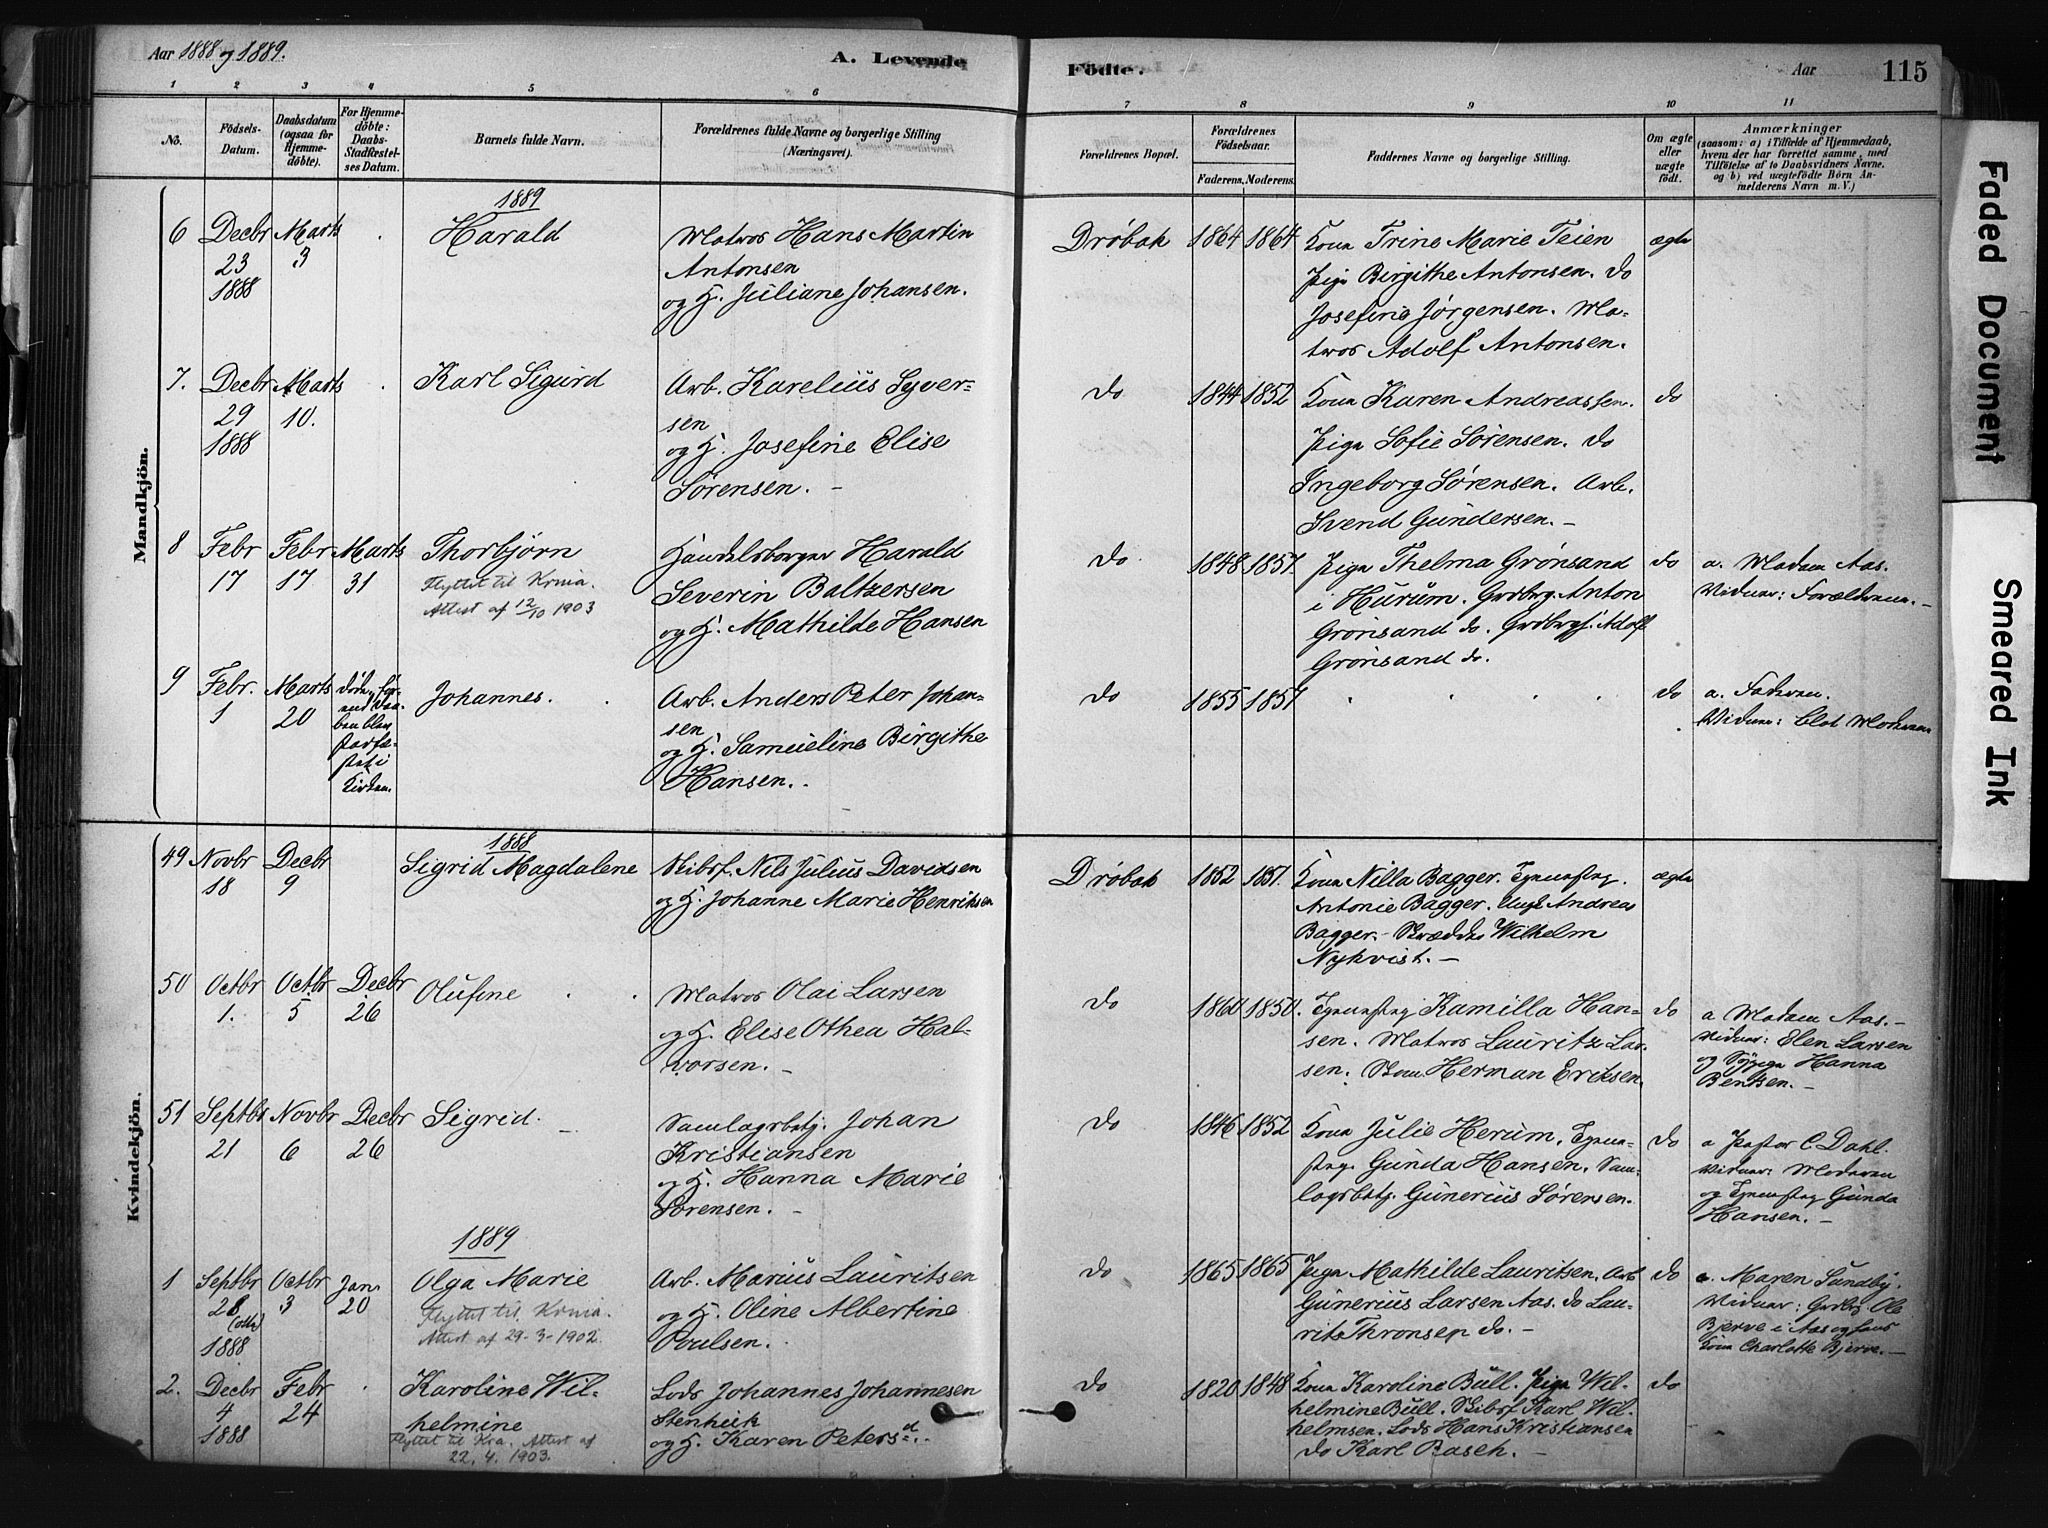 Aar 1888 og 1889.
A. Levende
Födte.
Aar
115
1 2 3 4 5 6 7 8 9 10 11
No.
Födsels-
Datum.
Daabsdatum
(ogsaa for
Hjemme-
döbte).
For Hjemme-
döbte:
Daabs-
Stadfæstel-
ses Datum.
Barnets fulde Navn.
Forældrenes fulde Navne og borgerlige Stilling
(Næringsvei).
Forældrenes Bopæl.
Forældrenes
Födselsaar.
Faderens. Moderens.
Faddernes Navne og borgerlige Stilling.
Om ægte
eller
uægte
födt.
Anmærkninger
(saasom: a) i Tilfælde af Hjemmedaab,
hvem der har forrettet samme, med
Tilföielse af to Daabsvidners Navne.
og b) ved uægtefödte Börn An-
melderens Navn m. V.)
Mandkjön.
1889
6 Decbr 23 1888
Marts 3
Harald
Matros Hans Martin
Antonsen
og H. Juliane Johansen.
Drøbak 1864 1864
Kona Trine Marie Teien
Pige Birgithe Antonsen. do
Josefine Jørgensen. Ma-
tros Adolf Antonsen.
ægte
7. Decbr 29 1888
Marts 10.
Karl Sigurd
Arb. Karelius Syver-
sen
og H. Josefine Elise
Sørensen. –
do 1844 1852
Kona Karen Andreassen.
Pige Sofie Sørensen. do
Ingeborg Sørensen. Arb.
Svend Gundersen. –
do
8 Febr 17
Febr 17
Marts 31
Thorbjørn
Flyttet til Krnia.
Attest af 12/10 1903
Handelsborger Harald
Severin Baltzersen
og H. Mathilde Hansen
do 1848 1857
Pige Thelma Grønsand
i Hurum. Grdbrg. Anton
Grønsand do. Grdbrgs. Adolf
Grønsand do.
do
a. Madam Aas.
Vidner: Forældrene. –
9 Febr. 1
Marts 20
Johannes.
Arb. Anders Peter Johan-
sen
og H. Samueline Birgithe
Hansen.
do 1855 1857
do
a. Faderen.
Vidner: blot Moderen
Kvindekjön.
1888
49 Novbr 18
Decbr 9
Sigrid Magdalene
Skibsf. Nils Julius Davidsen
og H. Johanne Marie Henriksen
Drøbak 1852 1857.
Kona Nilla Bagger.
Antonie Bagger. Andreas
Bagger. – Skrædder Wilhelm
Nykvist. –
ægte
50 Octbr 1.
Octbr 5
Decbr 26
Olufine
Matros Olai Larsen
og H. Elise Othea Hal-
vorsen. –
do 1860 1850.
Kamilla Han-
sen. Matros Lauritz Lar-
sen. Herman Eriksen.
do
a Madam Aas. –
Vidner: Elen Larsen
og Sypige Hanna
Bentsen. –
51 Septbr 21
Novbr 6
Decbr 26
Sigrid.
Samlagsbetj. Johan
Kristiansen
og H. Hanna Marie
Sørensen. –
do 1846 1852
Kona Julie Herum.
Gunda Hansen. Sam-
lagsbetj. Gunerius Sørensen.
do
a Pastor C. Dahl.
Vidner: Moderen
og Gunda
Hansen. –
1889
1 Septbr 28 1888
Octbr 3
Jan. 20
Olga Marie
Flyttet til Krnia.
Attest af 29-3-1902.
Arb. Marius Lauritsen
og H. Oline Albertine
Poulsen.
do 1865 1865
Pige Mathilde Lauritsen. Arb
Gunerius Larsen Aas. do Lau-
rits Thronsen do. –
do
a. Maren Sundby.
Vidner: Grdbr. Ole
Bjerve i Aas og hans
Kona Charlotte Bjerve. –
2. Decbr 4 1888
Febr 24
Karoline Wil-
helmine
Flyttet til Kra. Attest af
22.4.1903.
Lods Johannes Johannesen
Stenhuk
og H. Karen Petersd.
do 1820 1848
Kona Karoline Bull. Pige Wil-
helmine Bull. Skibsf. Karl Wil-
helmsen. Lods Hans Kristiansen
do Karl Rasch. –
do
Faded Document
Smeared Ink